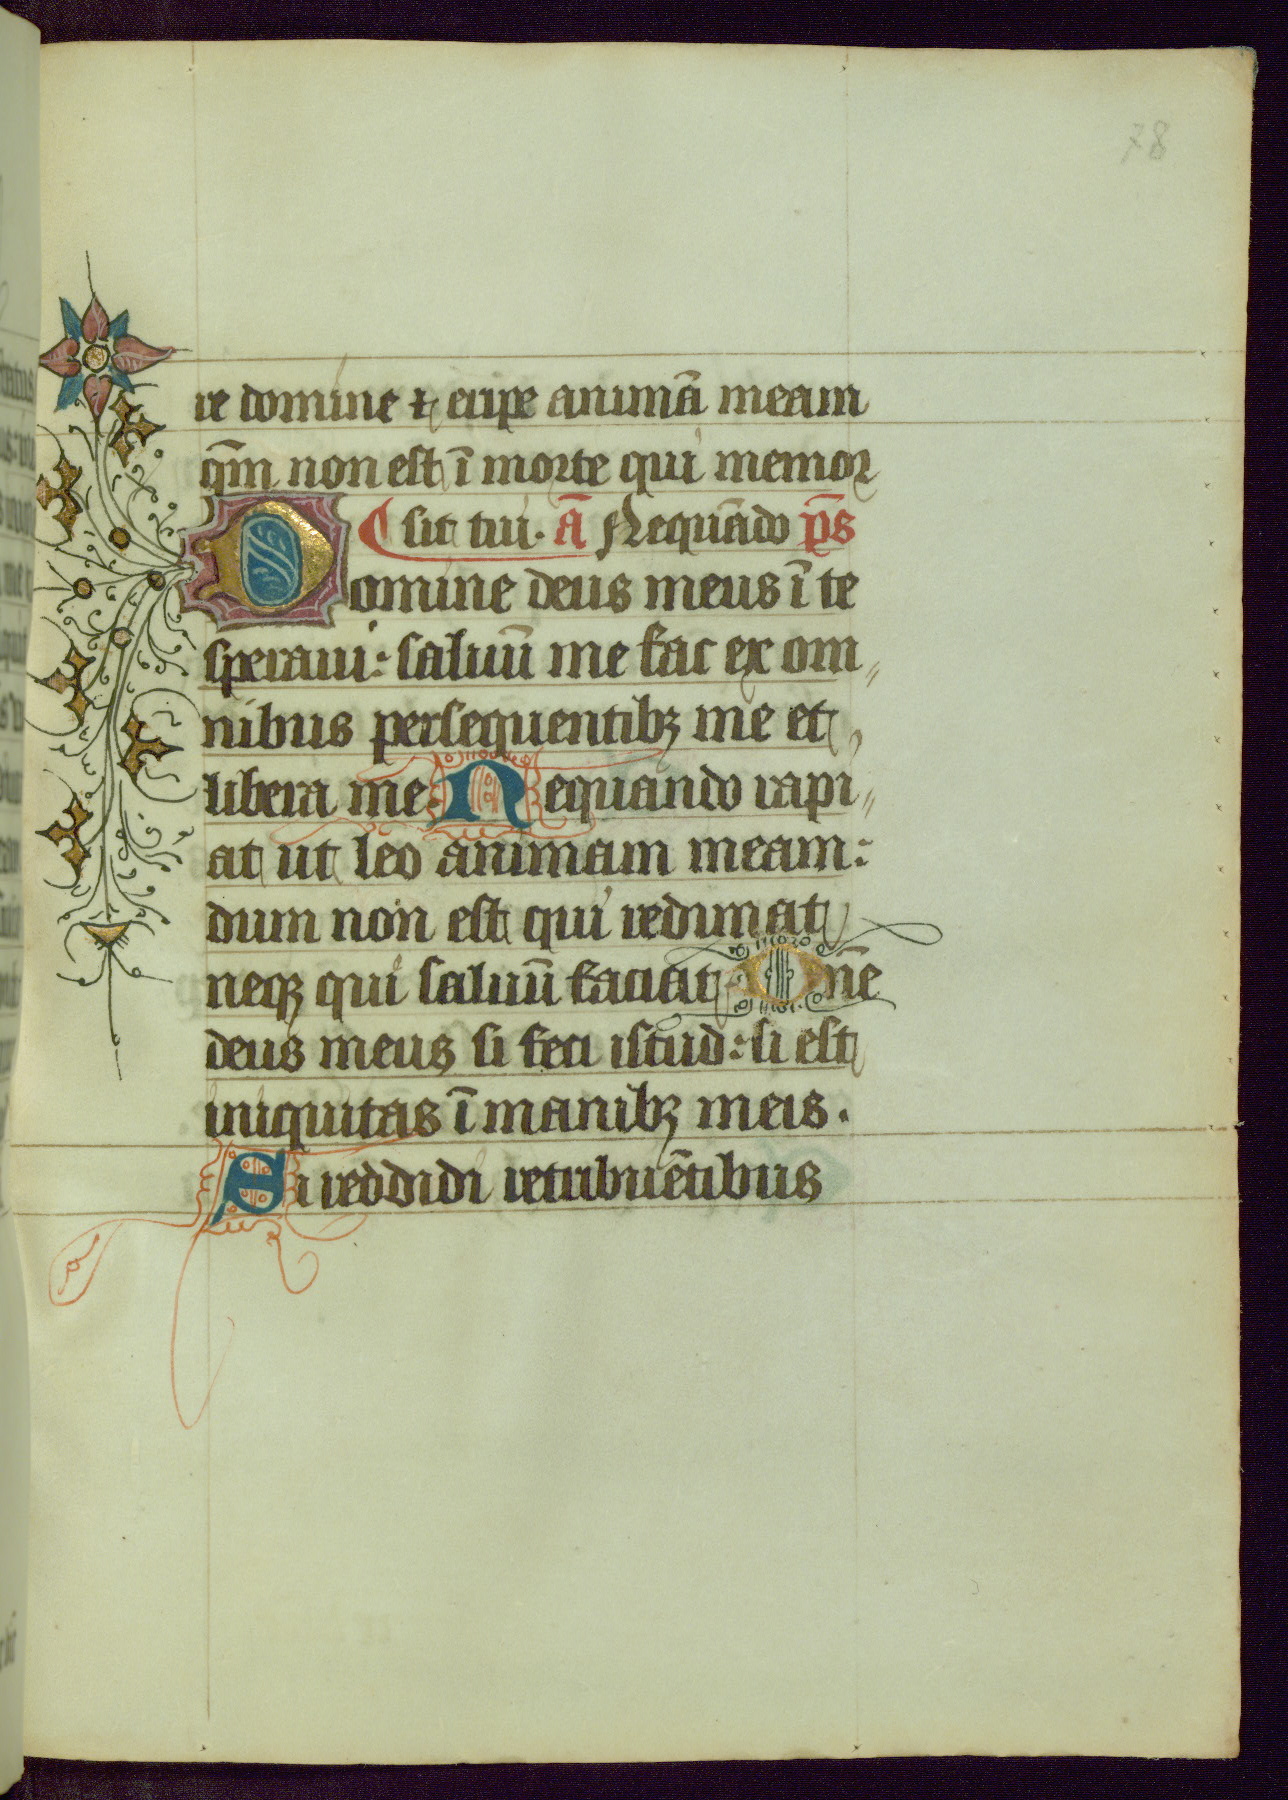 78
re domine ⁊ eripe animā meam
qm̄ non est ī morte qui memor
sit tui. ā Nequādo ps̄
Domine deus meus ī te
speraui: saluū me fac ex om„
nibus persequentibꝫ me et
libera me. Nequando rapi„
at ut leo animam meam:
dum non est qui redimat
neqꝫ qui saluū faciat Dn̄e
deus meus si feci istud: si est
iniquitas ī manibꝫ meis.
Si reddidi retribuētibus